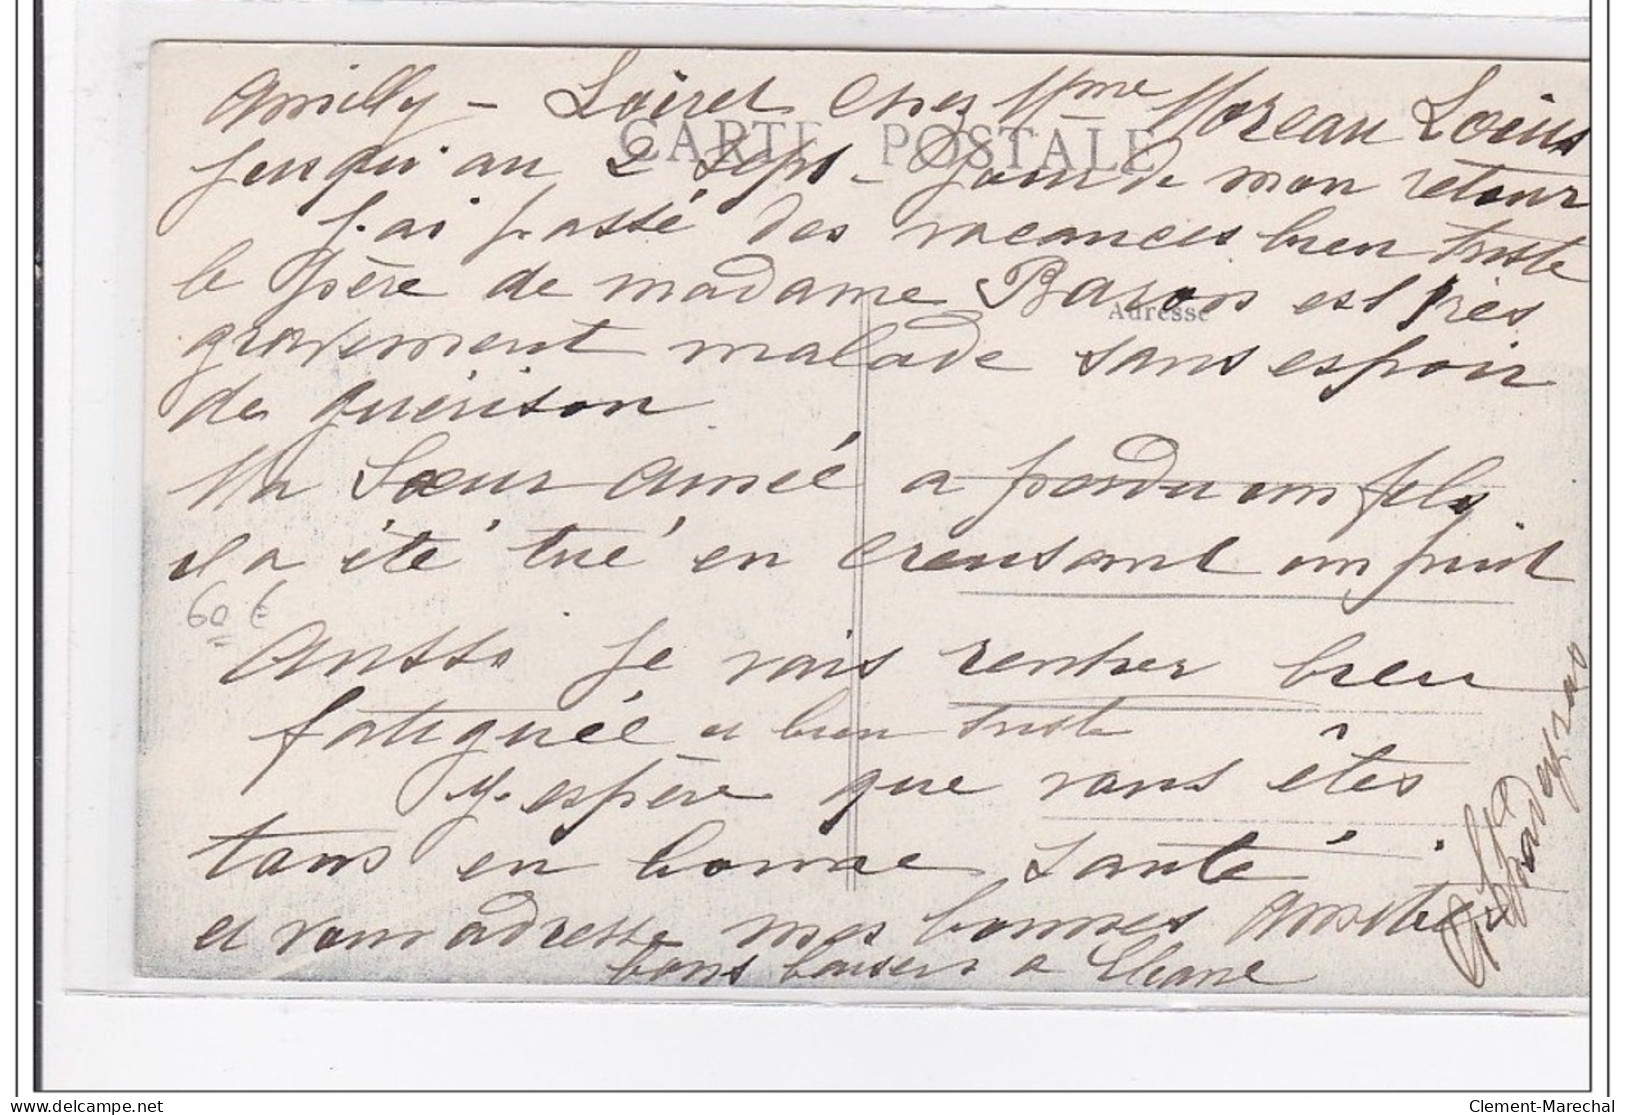 Amilly - Loiret chez Mme Moreau Louis
CARTE POSTALE
jusqu'au 2 Sept - jour de mon retour
j'ai passé des vacances bien triste
le père de madame Baron est très
Adresse
gravement malade sans espoir
de guérison
Ma Sœur ainée a perdu un fils
il a été tué en creusant un puit
60 €
Aussi je vais rentrer bien
fatiguée et bien triste
J'espère que vous êtes
tous en bonne santé
et vous adresse mes bonnes Amitiés
bons baisers a Eliane
Clement-Marechal
delcampe.net